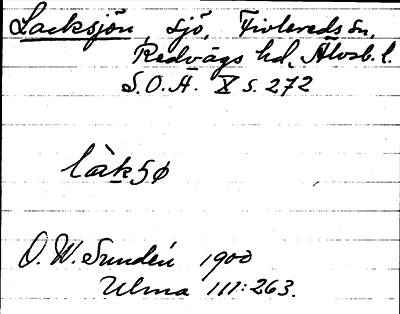 Lacksjön, sjö, Tivlereds sn,
Redvägs hd, Älvsb. l.
S.O.Ä. X s. 272
làksø
O. W. Sundén 1900
Ulma 111:263.